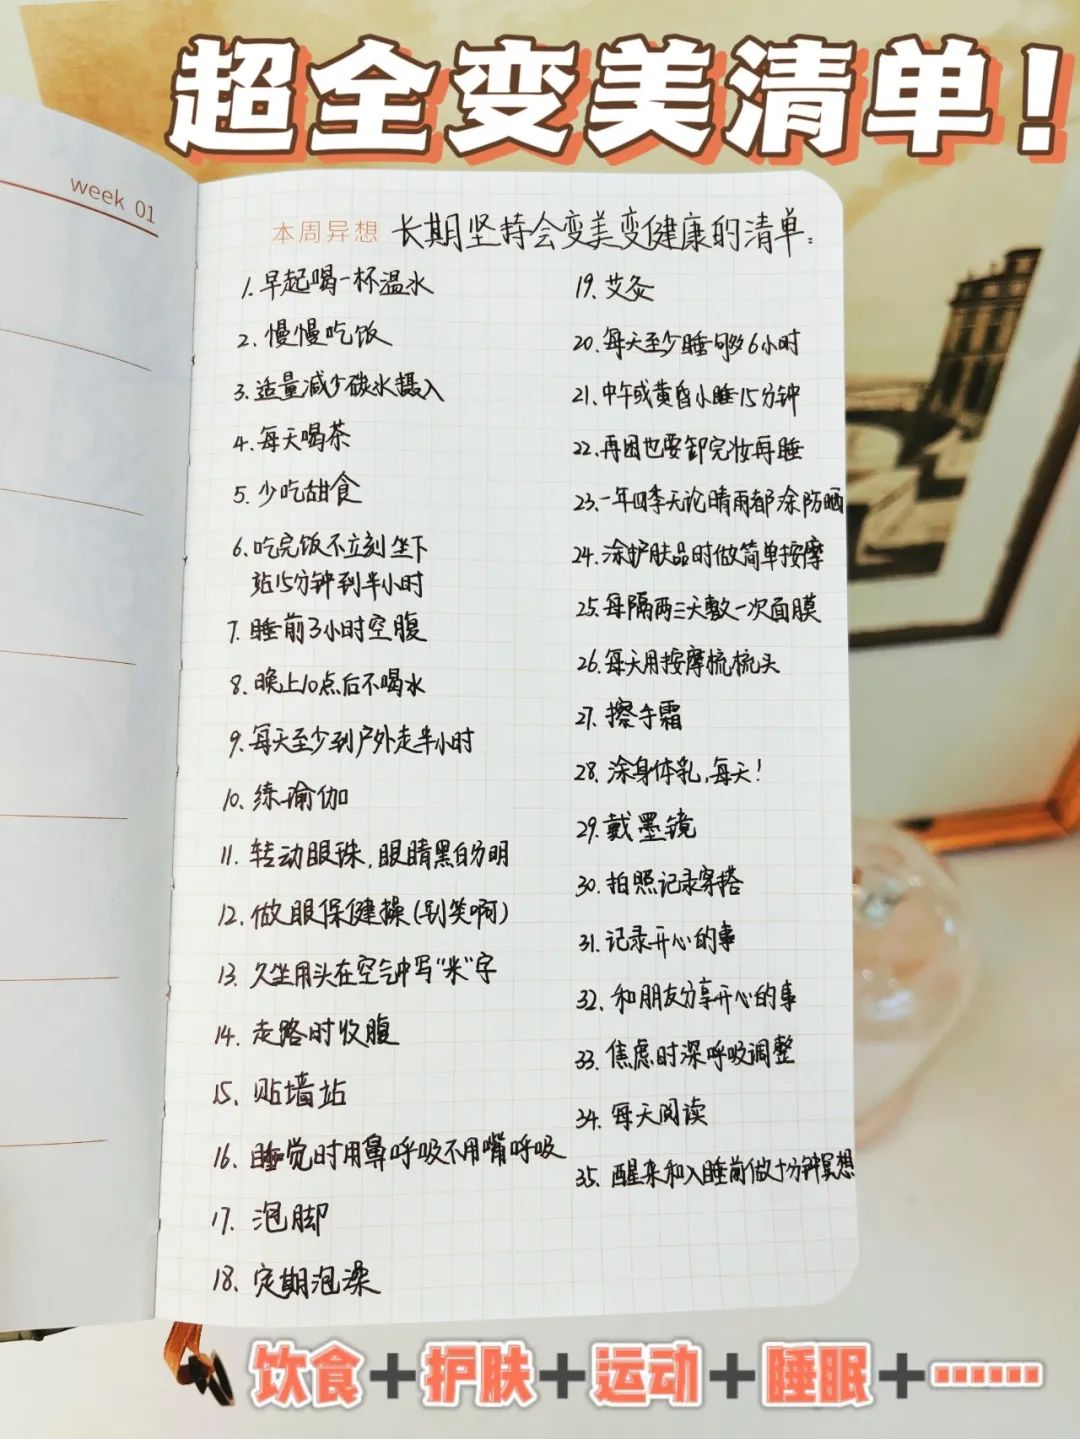 超全变美清单!
week 01
本周异想 长期坚持会变美变健康的清单:
1.早起喝一杯温水
2.慢慢吃饭
3.适量减少碳水摄入
4.每天喝茶
5.少吃甜食
6.吃完饭不立刻坐下
站15分钟到半小时
7.睡前3小时空腹
8.晚上10点后不喝水
9.每天至少到户外走半小时
10.练瑜伽
11.转动眼珠,眼睛黑白分明
12.做眼保健操(别笑啊)
13.久坐用头在空气中写"米"字
14.走路时收腹
15.贴墙站
16.睡觉时用鼻呼吸不用嘴呼吸
17.泡脚
18.定期泡澡
19.艾灸
20.每天至少睡够6小时
21.中午或黄昏小睡15分钟
22.再困也要卸完妆再睡
23.一年四季无论晴雨都涂防晒
24.涂护肤品时做简单按摩
25.每隔两三天敷一次面膜
26.每天用按摩梳梳头
27.擦手霜
28.涂身体乳,每天!
29.戴墨镜
30.拍照记录穿搭
31.记录开心的事
32.和朋友分享开心的事
33.焦虑时深呼吸调整
34.每天阅读
35.醒来和入睡前做十分钟冥想
饮食+护肤+运动+睡眠+……